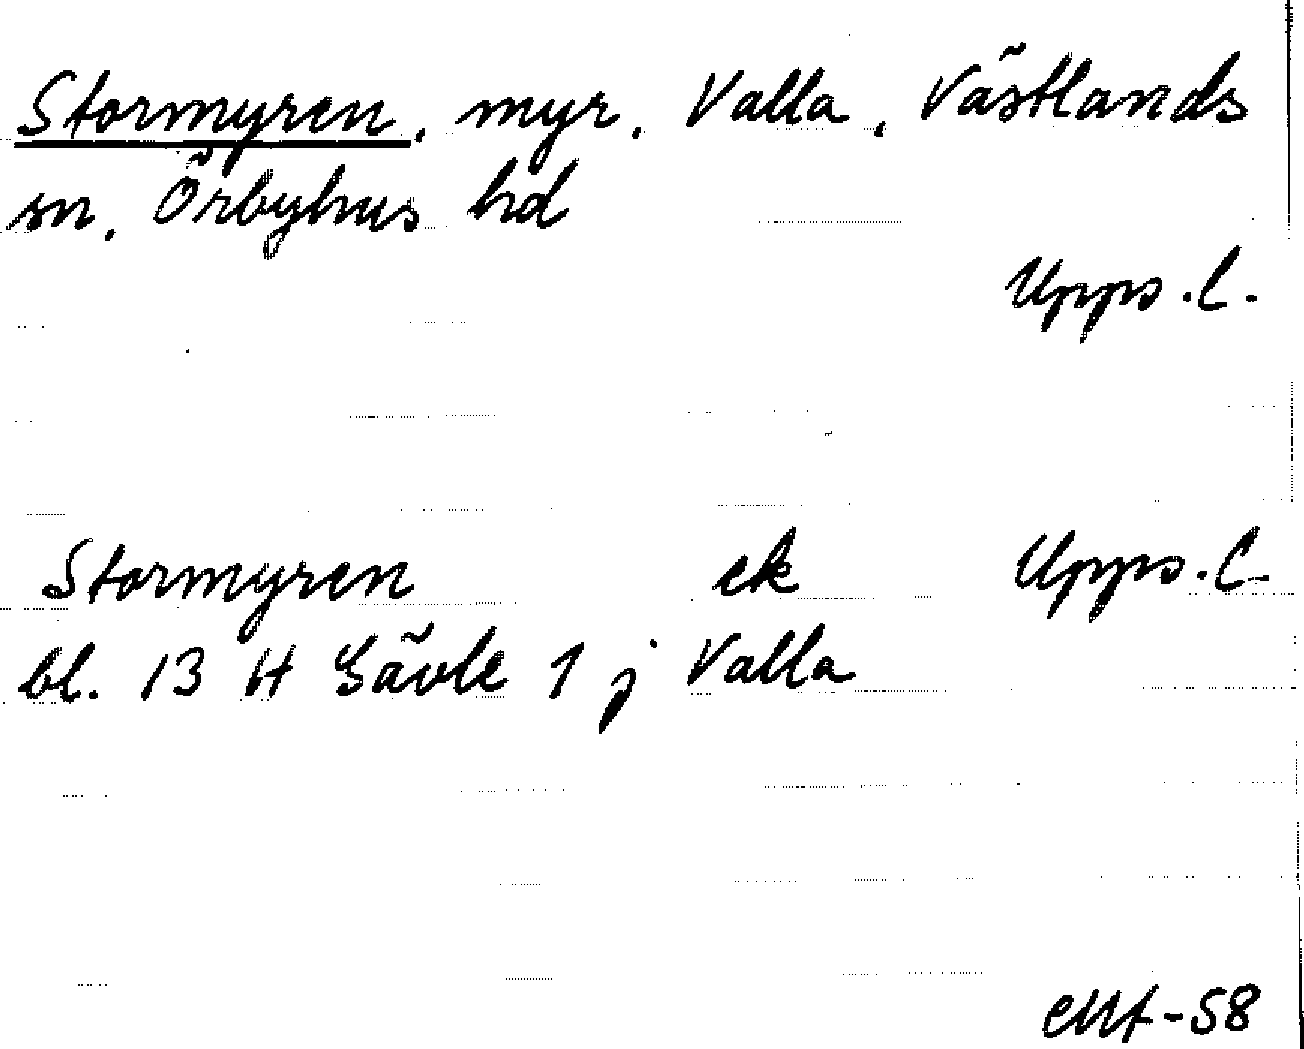 Stormyren, myr, Valla, Västlands
sn, Örbyhus hd
Upps. l.
Stormyren ek Upps. l.
bl. 13 H Gävle 1 j Valla